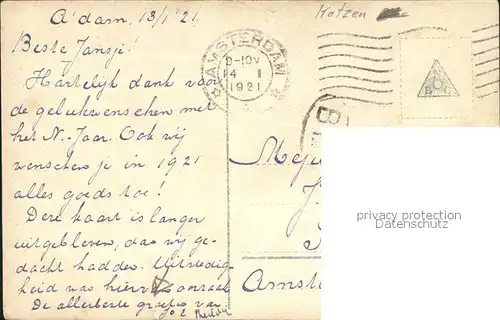 A'dam, 13/1 '21.
Katzen
Beste Jansje!
Hartelijk dank voor
de gelukwenschen met
het N.-Jaar. Ook wij
wenschen je in 1921
alles goeds toe!
Deze kaart is langer
uitgebleven, dan wij ge-
dacht hadden. Uitstedig-
heid was hiervan oorzaak
De allerbeste groeten van
AMSTERDAM
9-10V
14 I
1921
N
B
Meje
Amste
privacy protection
Datenschutz